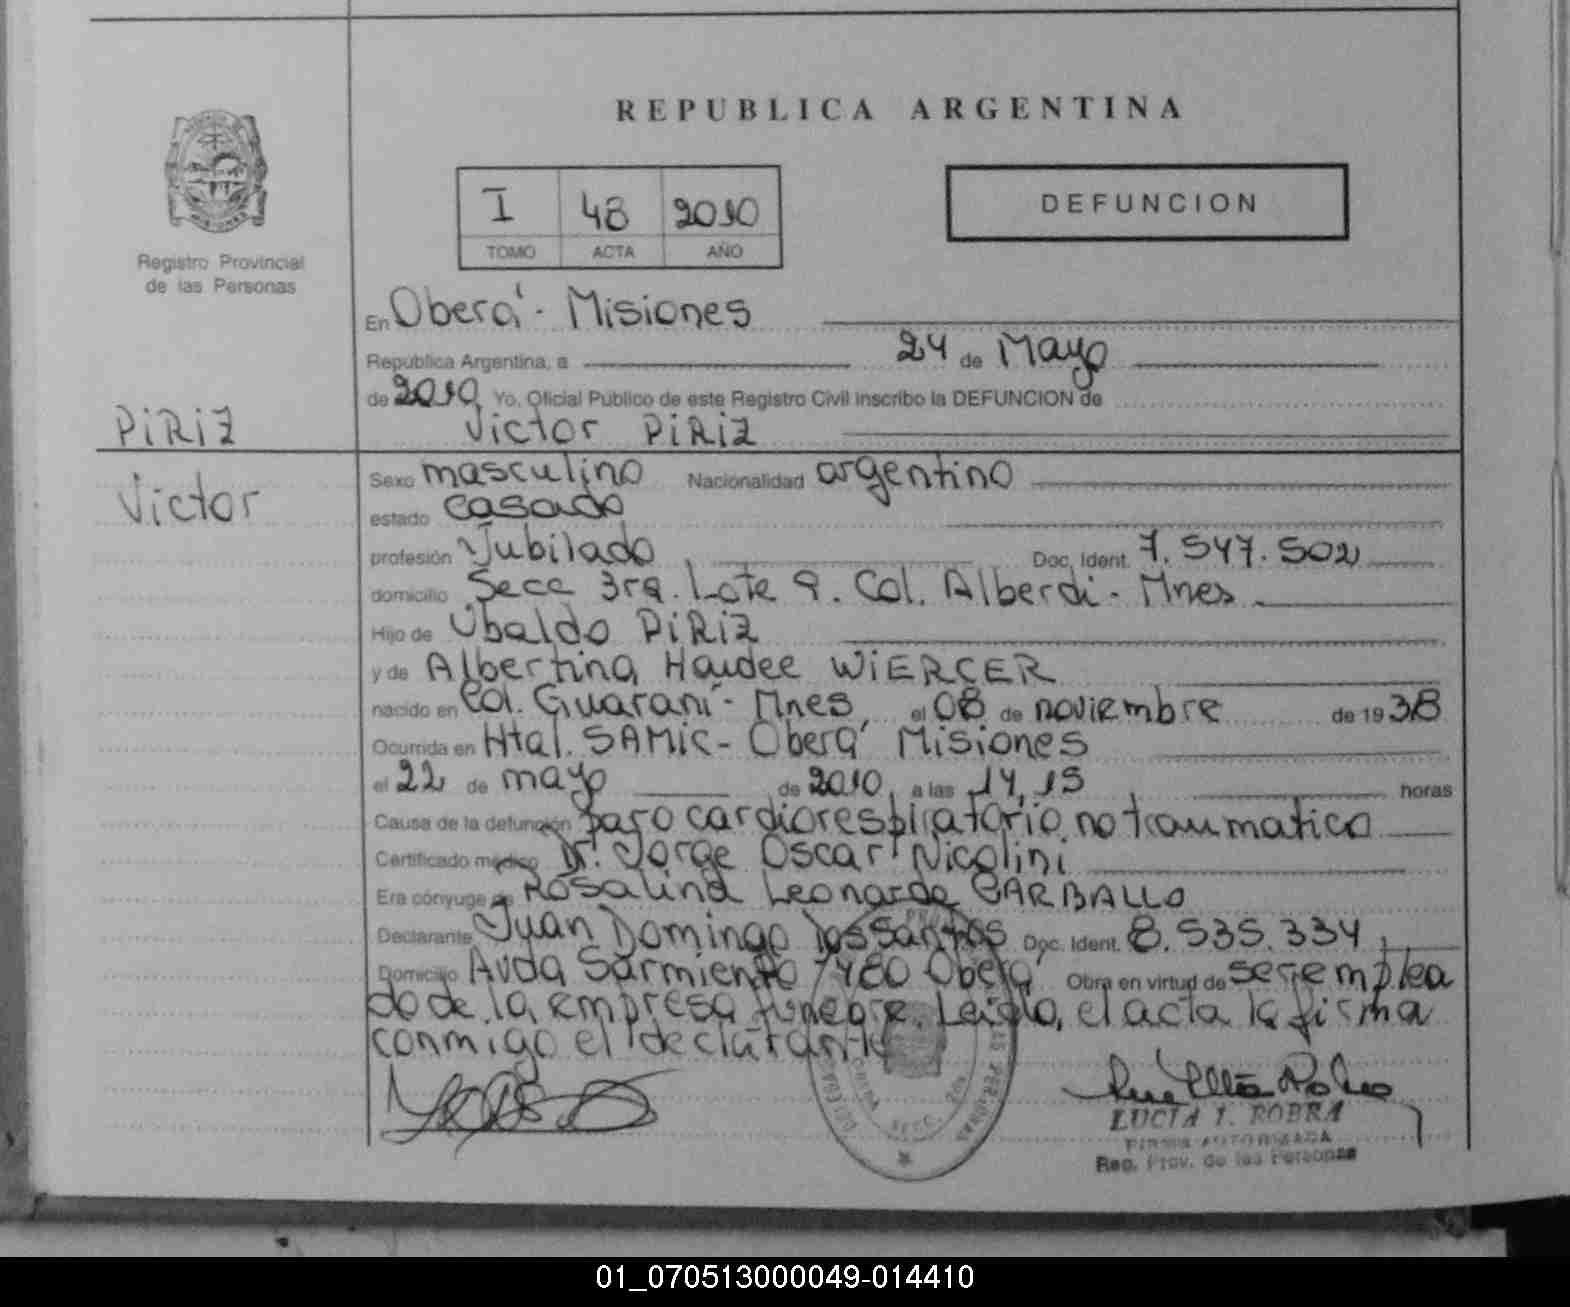 REPUBLICA ARGENTINA
I 48 2010
TOMO ACTA AÑO
DEFUNCION
Registro Provincial
de las Personas
En Oberá - Misiones
República Argentina, a 24 de Mayo
de 2010 Yo, Oficial Público de este Registro Civil inscribo la DEFUNCION de
Victor PiRiZ
PiRiZ
Victor
Sexo masculino Nacionalidad argentino
estado casado
profesión Jubilado Doc. Ident. 7.547.502
domicilio Secc 3ra. Lote 9. Col. Alberdi - Mnes
Hijo de Ubaldo PiRiZ
y de Albertina Haidee WiERCER
nacido en Col. Guaraní - Mnes el 08 de noviembre de 1938
Ocurrida en Htal. SAMIC - Oberá Misiones
el 22 de mayo de 2010 a las 14,15 horas
Causa de la defunción paro cardiorespiratorio no traumatico
Certificado médico Dr. Jorge Oscar Nicolini
Era cónyuge de Rosalind Leonarda CARBALLO
Declarante Juan Domingo Dos Santos Doc. Ident. 8.535.334
Domicilio Avda Sarmiento 1480 Oberá Obra en virtud de ser emplea
do de la empresa funebre. Leída, el acta la firma
conmigo el declarante
LUCIA I. ROBRA
FIRMA AUTORIZADA
Reg. Prov. de las Personas
01_070513000049-014410